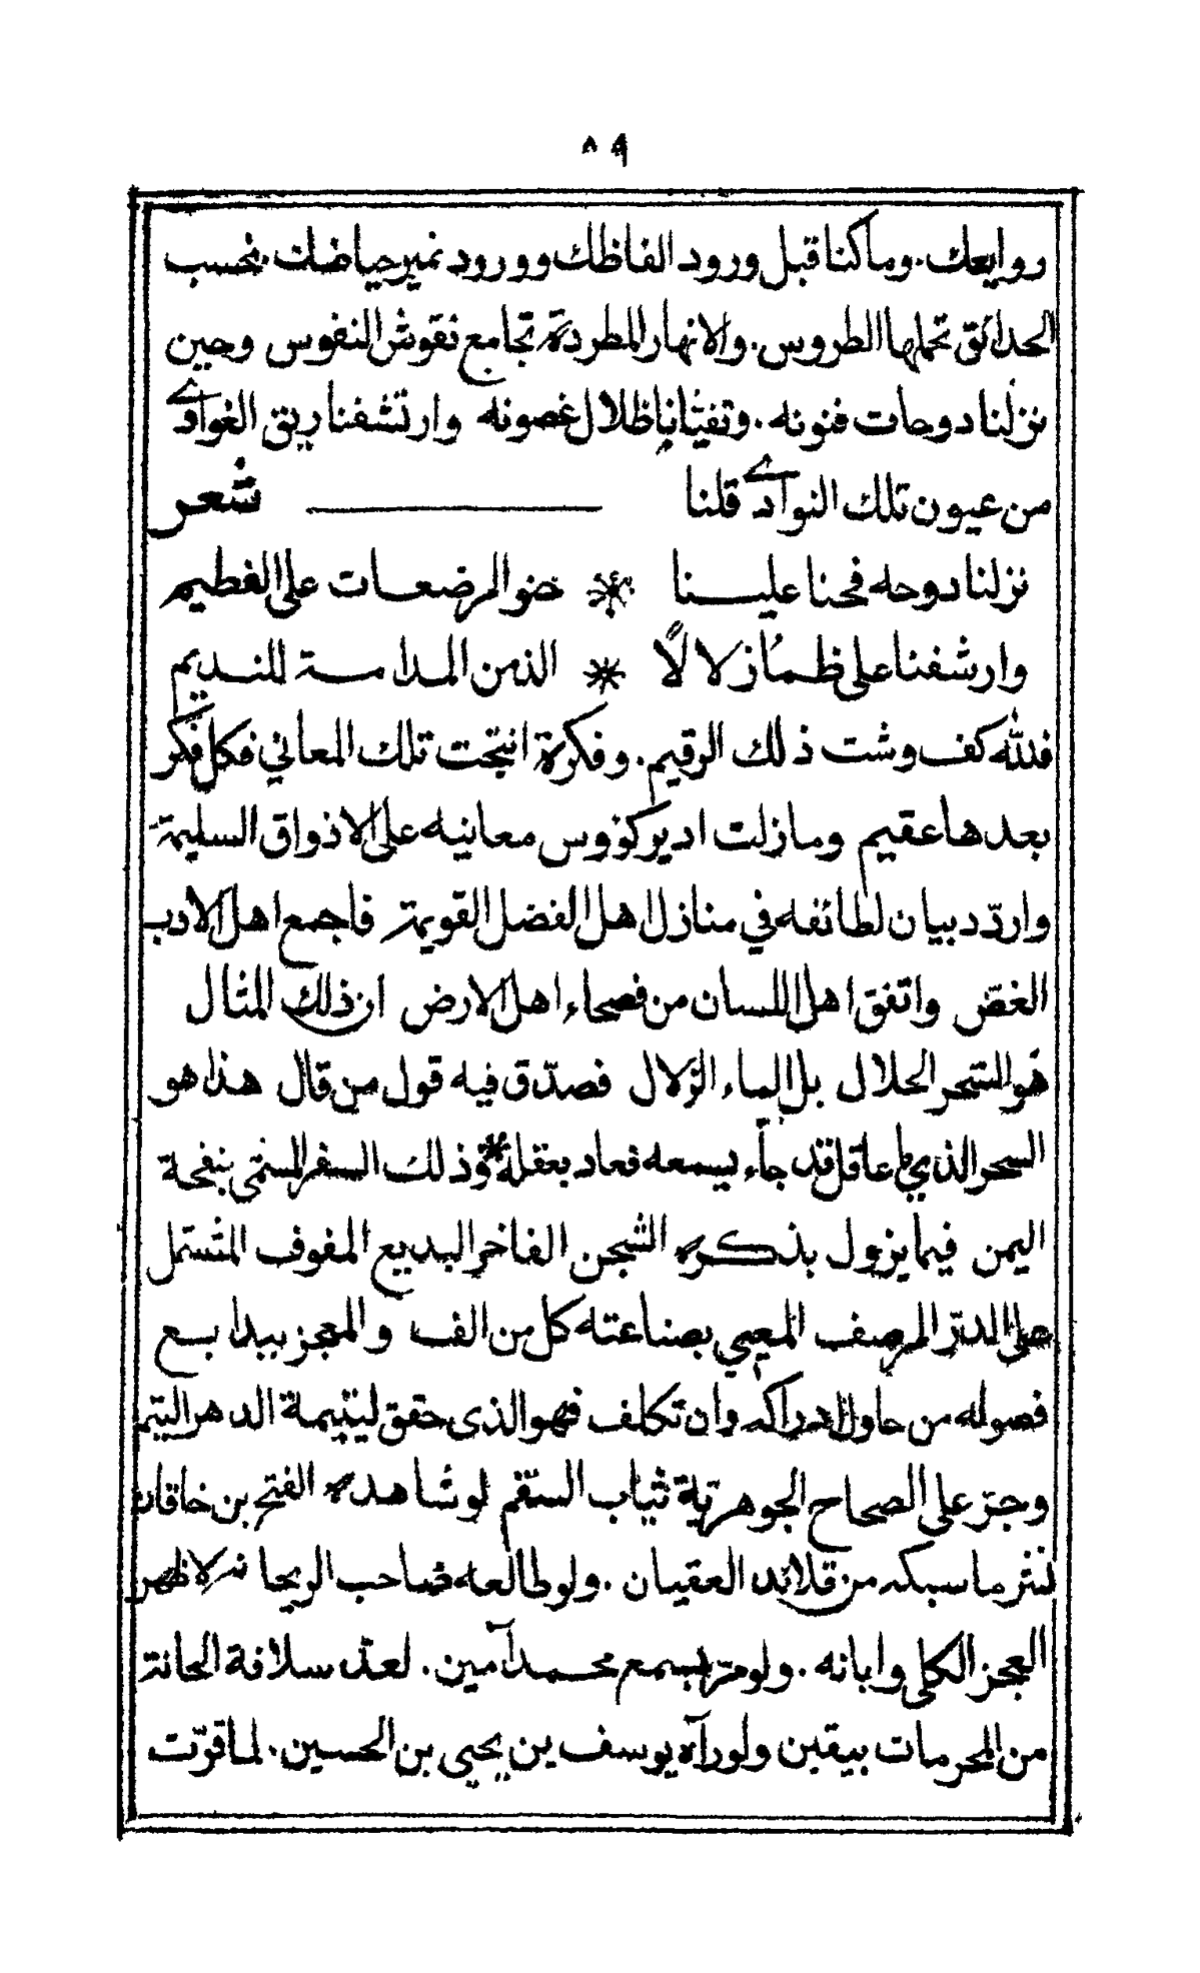 ٥٩
وروايعك . وما كنا قبل ورود الفاظك وورود نمير حياضك . نحسب
الحدائق تحملها الطروس . والانهار المطردة تجامع نقوش النفوس وحين
نزلنا دوحات فنونه . وتفيّأنا ظلال غصونه وارتشفنا ريق الغوادي
من عيون تلك النوادي قلنا شعر
نزلنا دوحه فحنا علينا * حنو المرضعات على الفطيم
وارشفنا على ظمأ زلالاً * الذ من المدامة للنديم
فلله كف وشت ذلك الرقيم . وفكرة انتجت تلك المعاني فكل فكر
بعدها عقيم وما زلت ادير كؤوس معانيه على الاذواق السليمة
واردّد بيان لطائفه في منازل اهل الفضل القويمة فاجمع اهل الادب
الغض واتفق اهل اللسان من فصحاء اهل الارض ان ذلك المثال
هو السّحر الحلال بل الماء الزلال فصدّق فيه قول من قال هذا هو
السحر الذي عاقل قد جآء يسمعه فعاد بعقلة وذلك السفر المسمّى بنفحة
اليمن فيما يزول بذكره الشجن . الفاخر البديع المفوف المشتمل
على الدرّ المرصف المعيي بصناعته كل من الف والمعجز ببدايع
فصوله من حاول ادراكه وان تكلف فهو الذى حقق ليتيمة الدهر اليتم
وجرّ على الصحاح الجوهريّة ثياب السّقم لو شاهده الفتح بن خاقان
نثر ما سبكه من قلائد العقيان . ولو طالعه صاحب الريحانة لاظهر
العجز الكلى وابانه . ولو مرّ بسمع محمد آمين . لعدّ سلافة الحانة
من المحرمات بيقين ولو رآه يوسف بن يحيى بن الحسين . لما قرّت